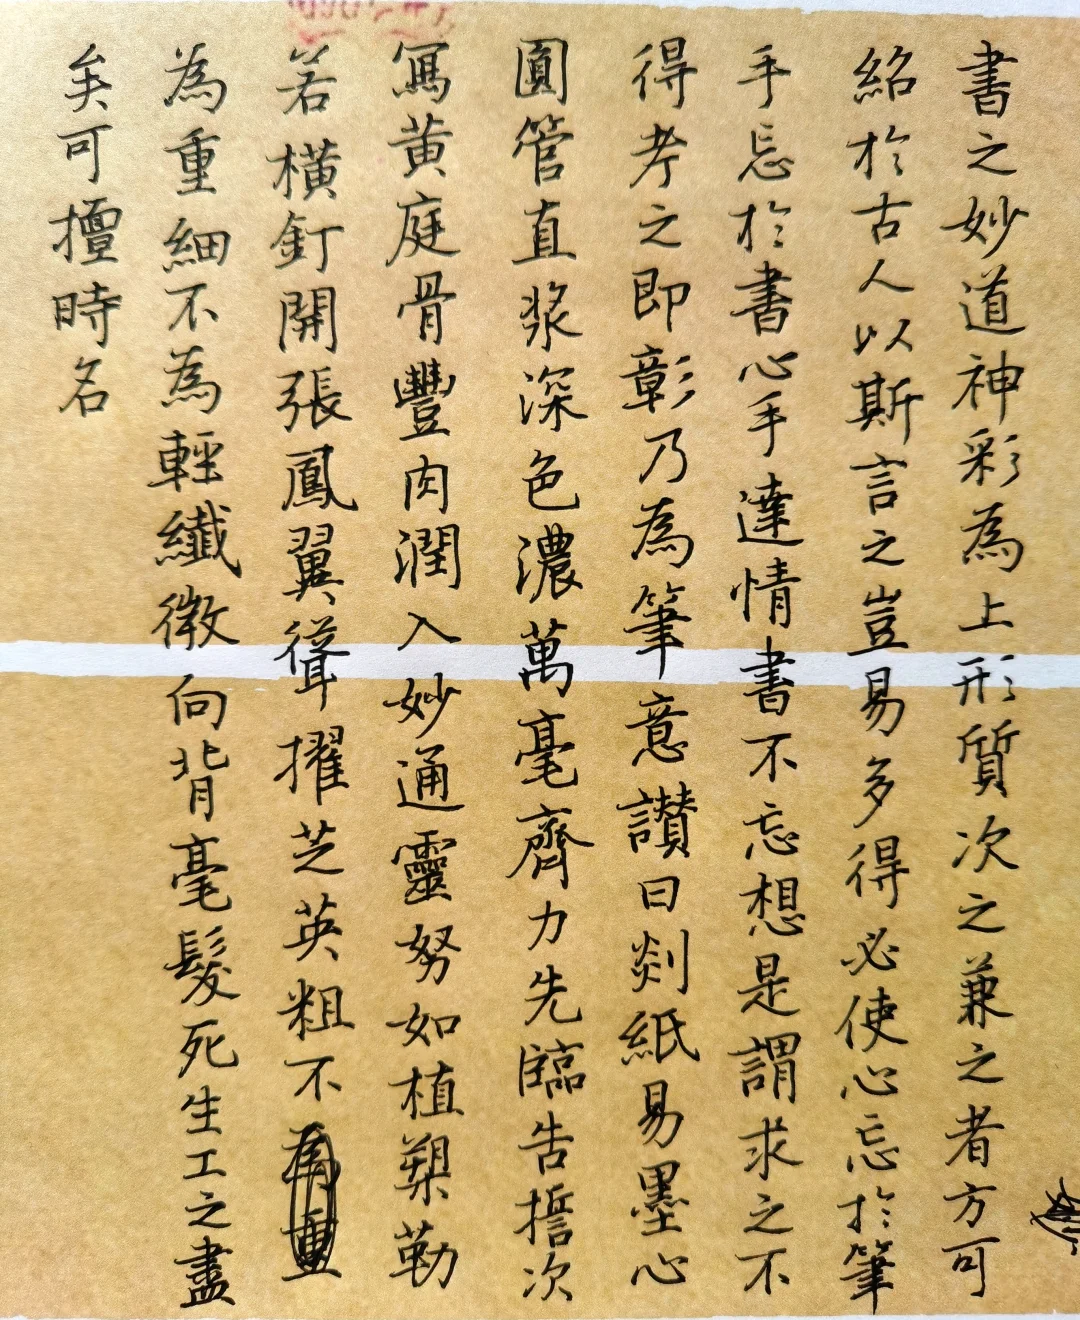 書之妙道神彩為上形質次之兼之者方可
紹於古人以斯言之豈易多得必使心忘於筆
手忘於書心手達情書不忘想是謂求之不
得考之即彰乃為筆意讃曰剡紙易墨心
圓管直漿深色濃萬毫齊力先臨告誓次
寫黃庭骨豐肉潤入妙通靈努如植槊勒
若橫釘開張鳳翼聳擢芝英粗不
為重細不為輕纖微向背毫髮死生工之盡
矣可擅時名